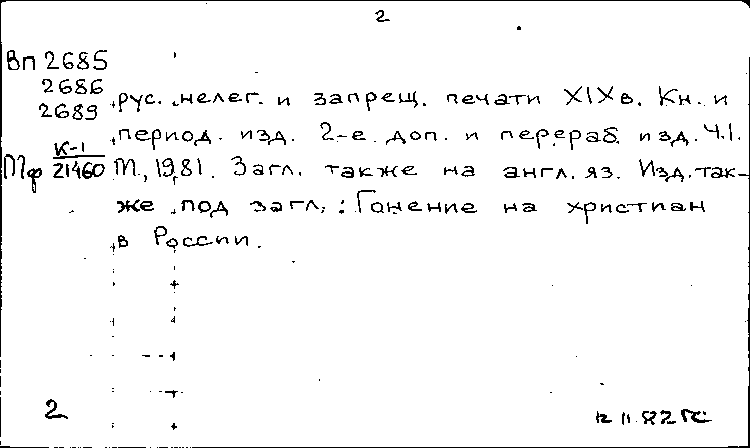 2
Вп 2685
2686
2689
Мф К-1
21460
рус. нелег. и запрещ. печати XIXв. Кн. и
период. изд. 2-е. доп. и перераб. изд. Ч.1.
М., 1981. Загл. также на англ. яз. Изд. так-
же под загл.: Гонение на христиан
в России.
2
12 11.82